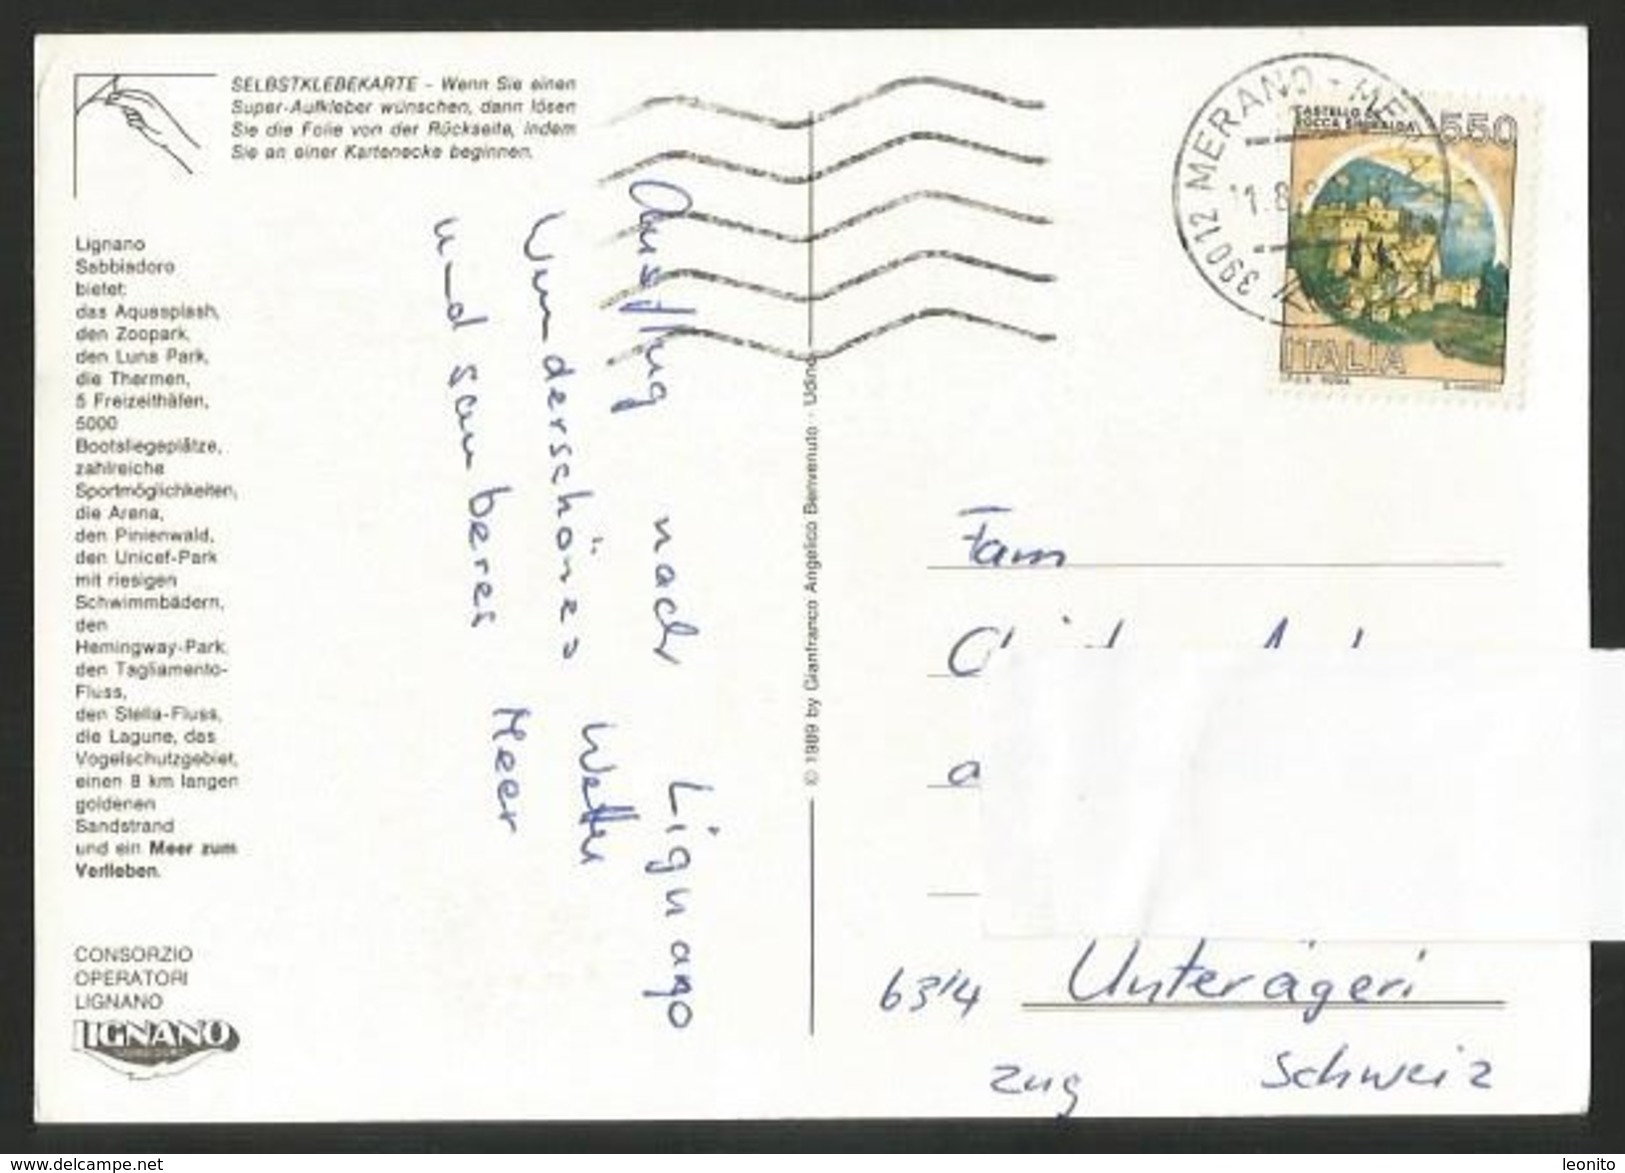 SELBSTKLEBEKARTE - Wenn Sie einen
Super-Aufkleber wünschen, dann lösen
Sie die Folie von der Rückseite, indem
Sie an einer Kartenecke beginnen.
Lignano
Sabbiadoro
bietet:
das Aquasplash,
den Zoopark,
den Luna Park,
die Thermen,
5 Freizeithäfen,
5000
Bootsliegeplätze,
zahlreiche
Sportmöglichkeiten,
die Arena,
den Pinienwald,
den Unicef-Park
mit riesigen
Schwimmbädern,
den
Hemingway-Park,
den Tagliamento-
Fluss,
den Stella-Fluss,
die Lagune, das
Vogelschutzgebiet,
einen 8 km langen
goldenen
Sandstrand
und ein Meer zum
Verlieben.
CONSORZIO
OPERATORI
LIGNANO
LIGNANO
Ausflug nach Lignano
Wunderschönes Wetter
und sauberes Meer
© 1989 by Gianfranco Angelico Benvenuto - Udine
39012 MERANO - MERAN
11.8
CASTELLO DI
ROCCA SINIBALDA
550
ITALIA
Fam
6314 Unterägeri
Zug Schweiz
leonito
www.delcampe.net